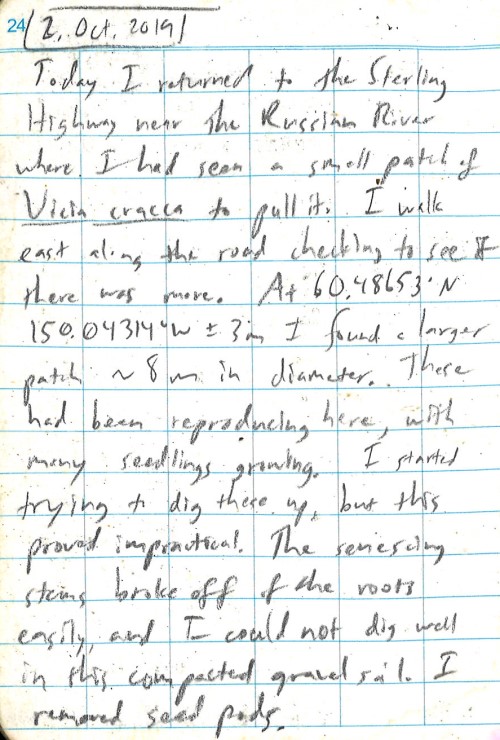 24
2. Oct. 2019
Today I returned to the Sterling
Highway near the Russian River
where I had seen a small patch of
Vicia cracca to pull it. I walk
east along the road checking to see if
there was more. At 60.48653°N
150.04314°W ± 3m I found a larger
patch ~ 8 m in diameter. These
had been reproducing here, with
many seedlings growing. I started
trying to dig these up, but this
proved impractical. The senescing
stems broke off of the roots
easily, and I could not dig well
in this compacted gravel soil. I
removed seed pods.